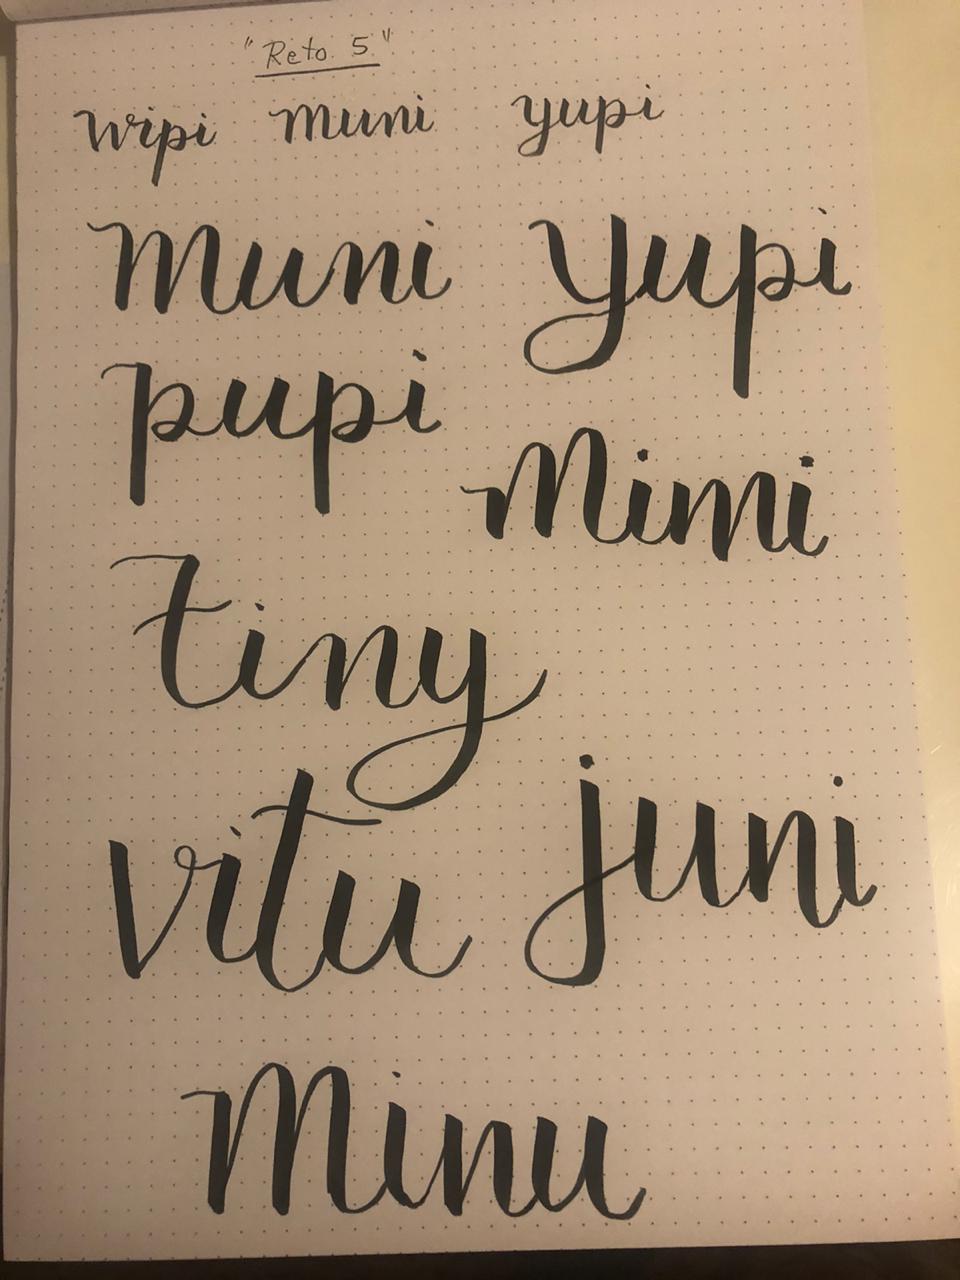 "Reto 5"
Wipi muni yupi
Muni yupi
pupi
Mimi
Tiny
vitu juni
Minu